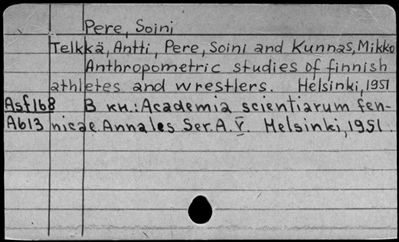 Pere, Soini
Telkkä, Antti, Pere, Soini and Kunnas, Mikko
Anthropometric studies of finnish
athletes and wrestlers. Helsinki, 1951
Asf168 В кн.: Academia scientiarum fen-
A613 nicae. Annales Ser. A. V. Helsinki, 1951.